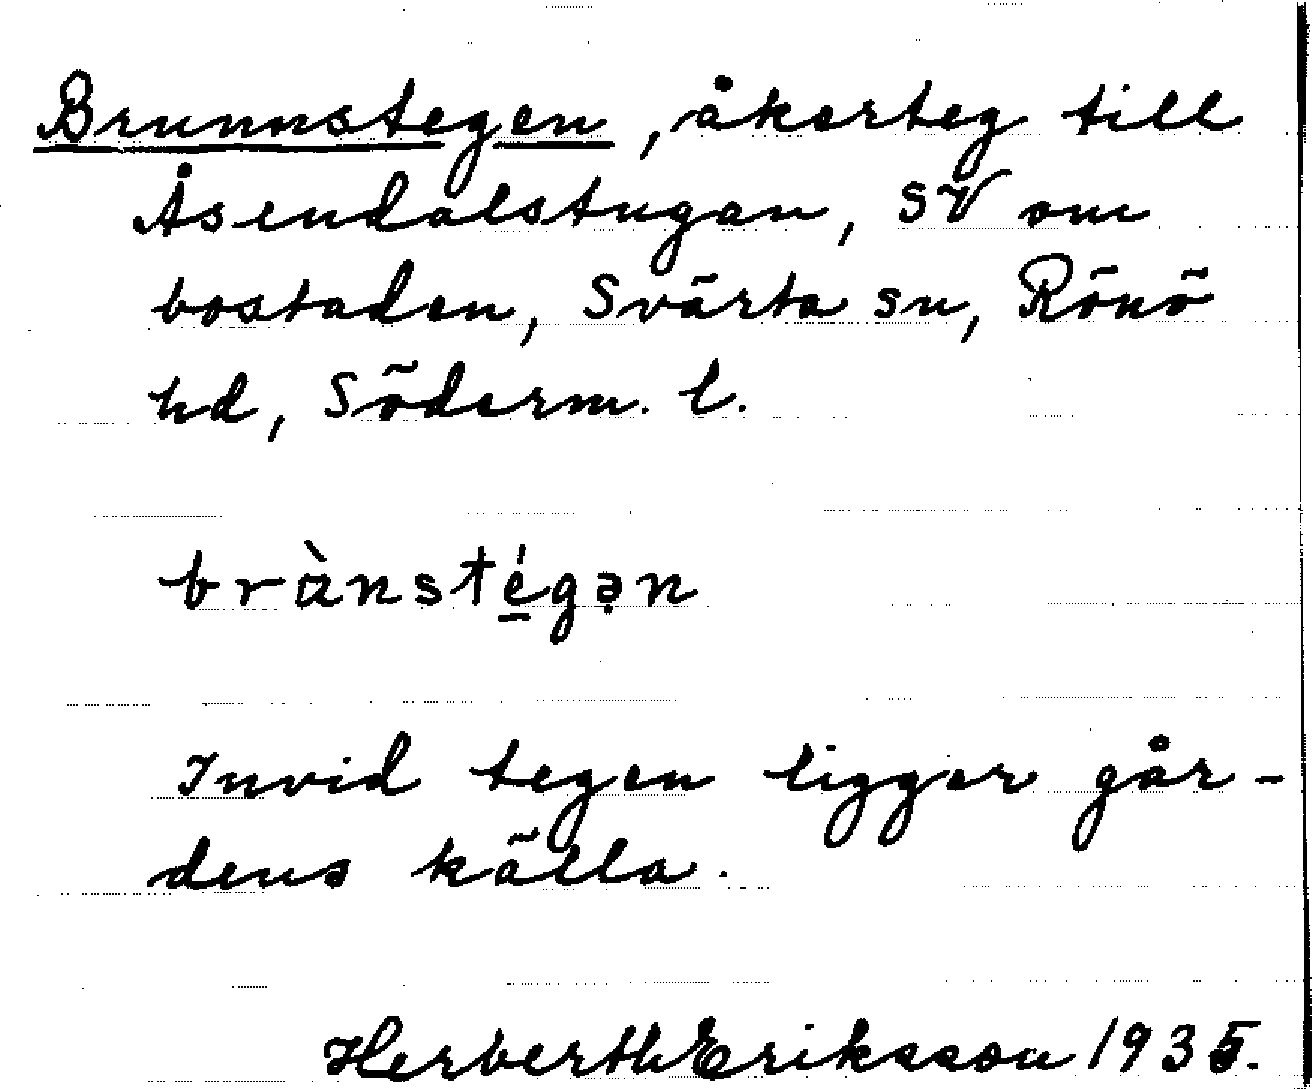 Brunnstegen, åkerteg till
Åsendalstugan, SV om
bostaden, Svärta sn, Rönö
hd, Söderm. l.
brànstégən
Invid tegen ligger går-
dens källa.
Herberth Eriksson 1935.